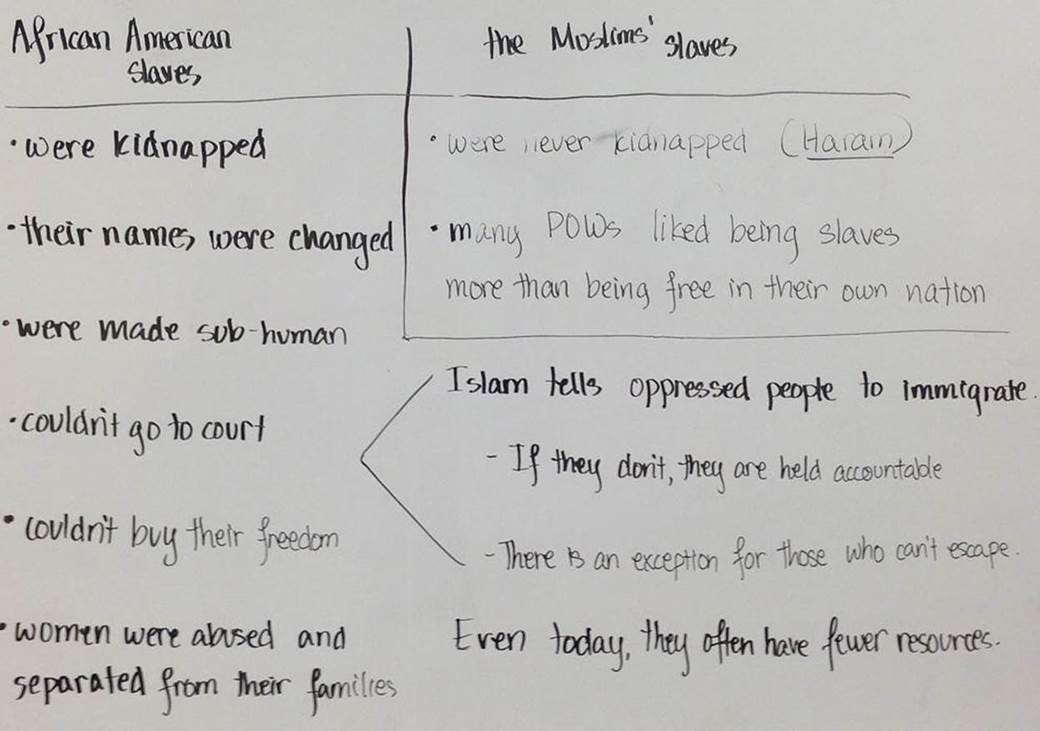 African American
slaves
• were kidnapped
• their names were changed
• were made sub-human
• couldn't go to court
• couldn't buy their freedom
• women were abused and
separated from their families
the Moslims' slaves
• were never kidnapped (Haram)
• many POWs liked being slaves
more than being free in their own nation
Islam tells oppressed people to immigrate.
- If they don't, they are held accountable
- There is an exception for those who can't escape.
Even today, they often have fewer resources.